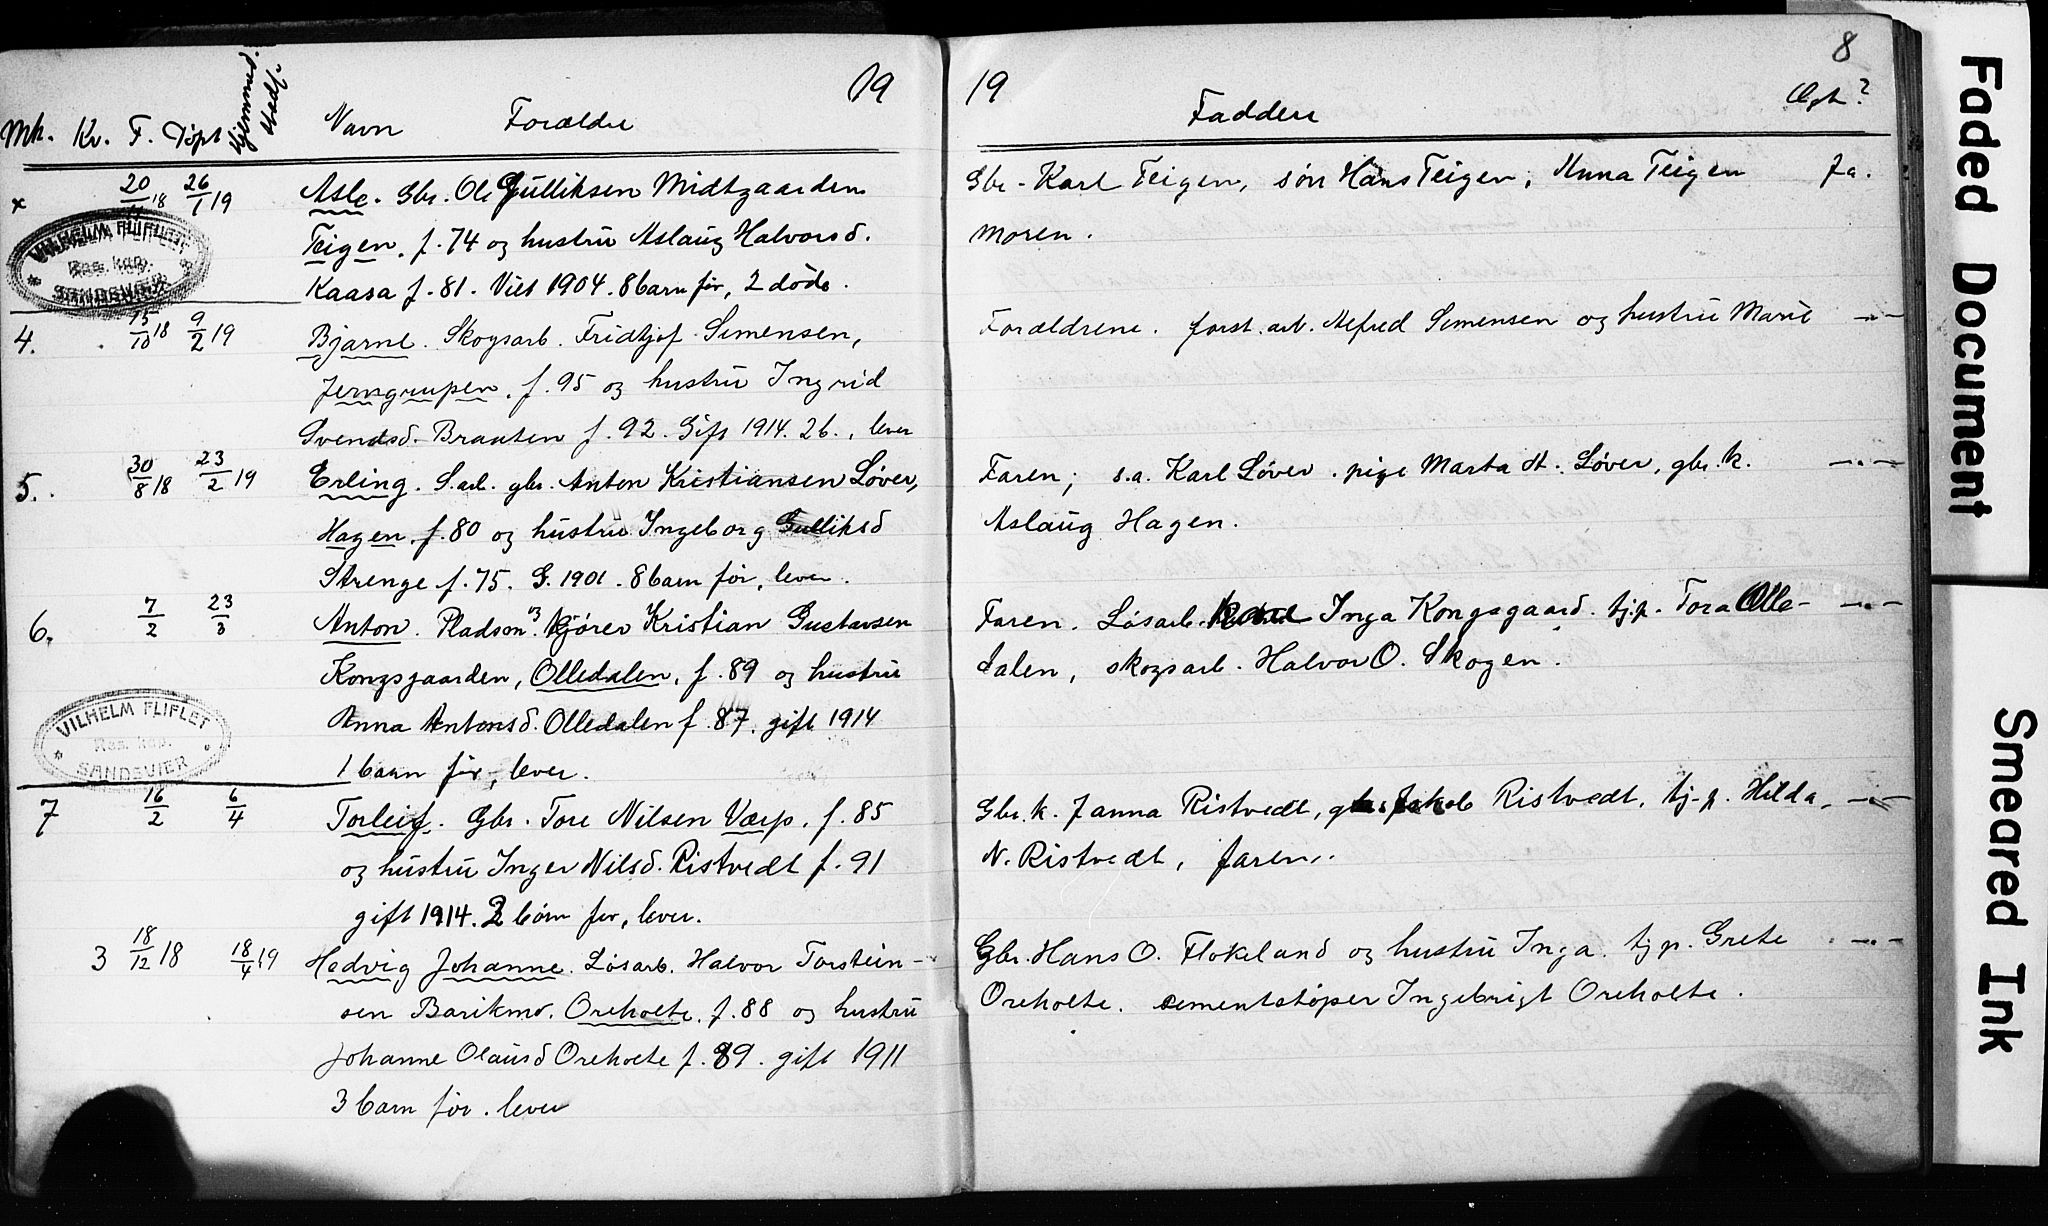 19
Mk. Kv. F. Døpt Hjemmed. Navn Forældre
x 20/11 18 26/1 19 Asle. Gbr. Ole Gulliksen Midtgaarden
Teigen. f. 74 og hustru Aslaug Halvorsd.
Kaasa f. 81. Viet 1904. 8 barn før, 2 døde.
VILHELM FLIFLET
Res. kap.
SANDSVÆR
4. 15/10 18 9/2 19 Bjarne. Skogsarb. Fridtjof Simensen,
Jerngrupen. f. 95 og hustru Ingrid
Svendsd. Brauten f. 92. Gift 1914. 2 b., lever
5. 30/8 18 23/2 19 Erling. S.arb. gbr. Anton Kristiansen Løver,
Hagen. f. 80 og hustru Ingeborg Gulliksd
Strenge f. 75. G. 1901. 8 barn før, lever.
6. 7/2 23/3 Anton. Pladsm. kjører Kristian Gustavsen
Kongsgaarden, Olledalen, f. 89 og hustru
Anna Antonsd. Olledalen f. 87. gift 1914
1 barn før, lever.
VILHELM FLIFLET
Res. kap.
SANDSVÆR
7 16/2 6/4 Torleif. Gbr. Tore Nilsen Værp. f. 85
og hustru Inger Nilsd. Ristvedt f. 91
gift 1914. 2 børn før, lever.
3 18/12 18 18/4 19 Hedvig Johanne. Løsarb. Halvor Torstein-
sen Barikmo. Oreholte. f. 88 og hustru
Johanne Olausd Oreholte f. 89. gift 1911
3 barn før. lever
8
19 Faddere Ægt?
Gbr. Karl Teigen, søn Hans Teigen, Anna Teigen Ja.
moren.
Forældrene. forst. arb. Alfred Simensen og hustru Marie -"-
Faren; s.a. Karl Løver. pige Marta At. Løver, gbr. k. -"-
Aslaug Hagen.
Faren. Løsarb. Inga Kongsgaard. tj.p. Tora Olle- -"-
dalen, skogsarb. Halvor O. Skogen.
Gbr. k. Janna Ristvedt, gbr. Jakob Ristvedt, tj.p. Hilda -"-
N. Ristvedt, faren.
Gbr. Hans O. Flokeland og hustru Inga. tj p. Grete -"-
Oreholte. sementstøper Ingebrigt Oreholte.
Faded Document
Smeared Ink